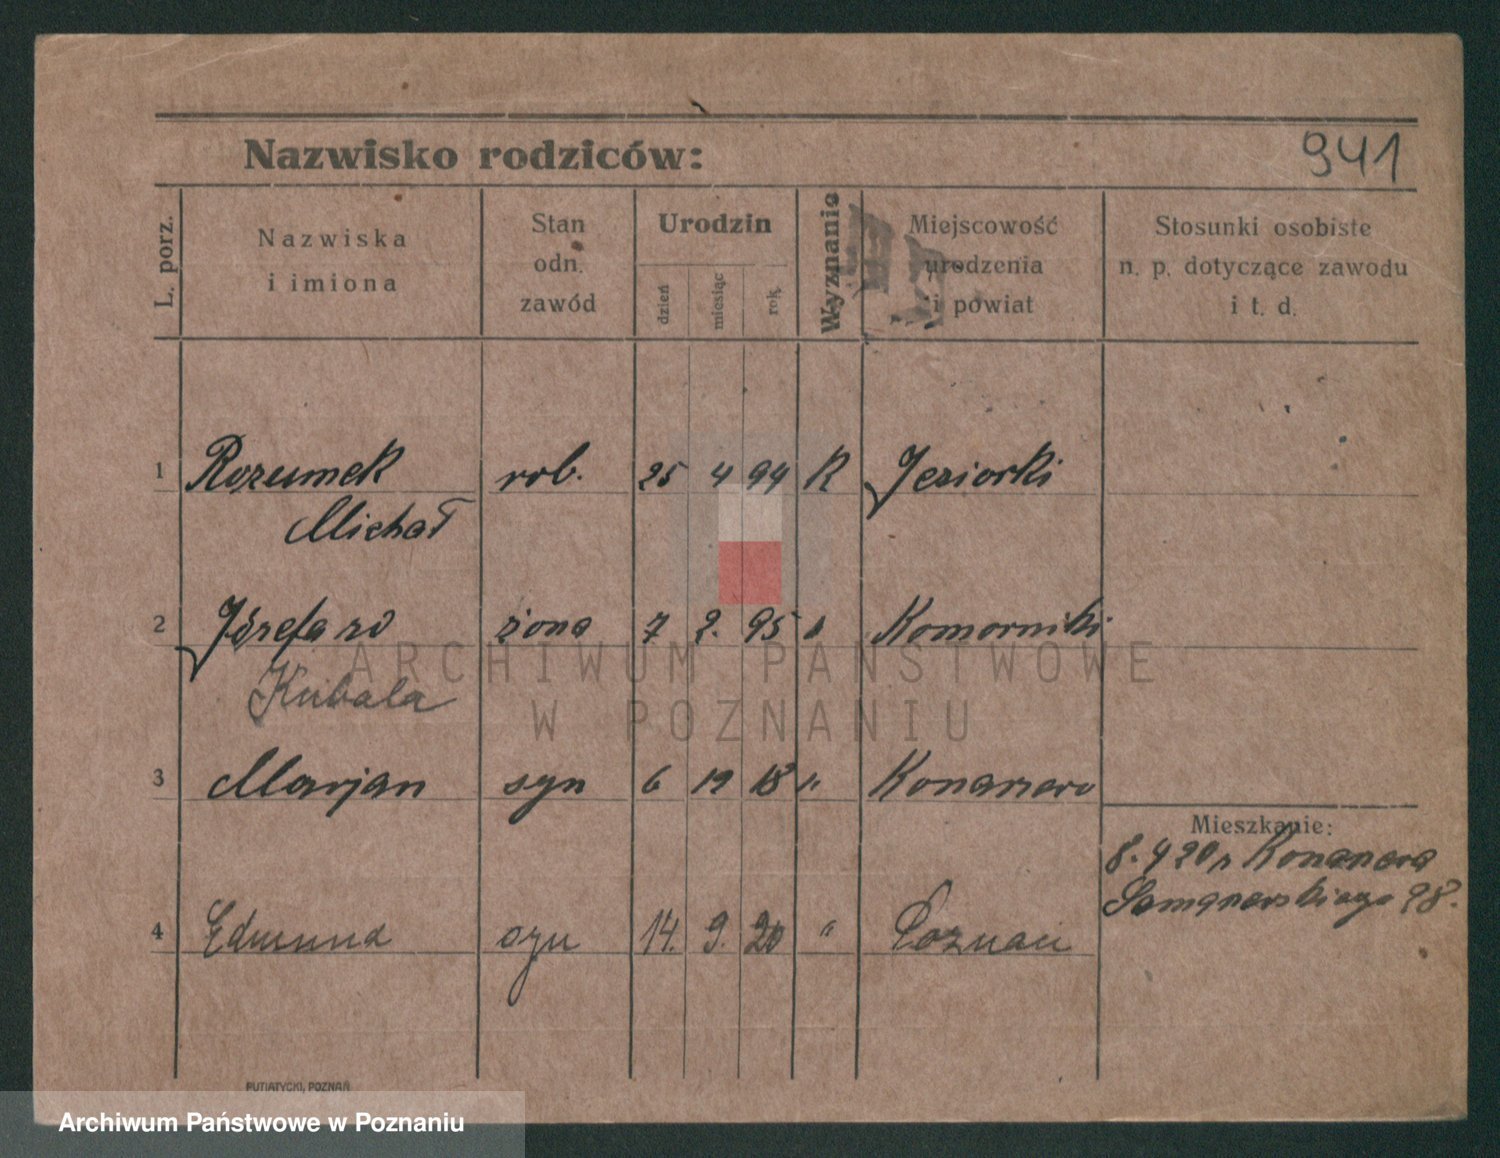 Nazwisko rodziców:
941
L. porz.
Nazwiska
i imiona
Stan
odn.
zawód
Urodzin
dzień
miesiąc
rok
Wyznanie
Miejscowość
urodzenia
i powiat
Stosunki osobiste
n. p. dotyczące zawodu
i t. d.
1 Rozumek rob. 25 4 94 R Jeziorki
Michał
2 Józefa zd żona 7 2. 95 Komorniki
Kubala
3 Marjan syn 6 19 18 " Konarzewo
Mieszkanie:
8. 4 20 z
98.
4 Edmund syn 14. 9. 20 " Poznań
PUTIATYCKI, POZNAŃ
ARCHIWUM PAŃSTWOWE
W POZNANIU
Archiwum Państwowe w Poznaniu